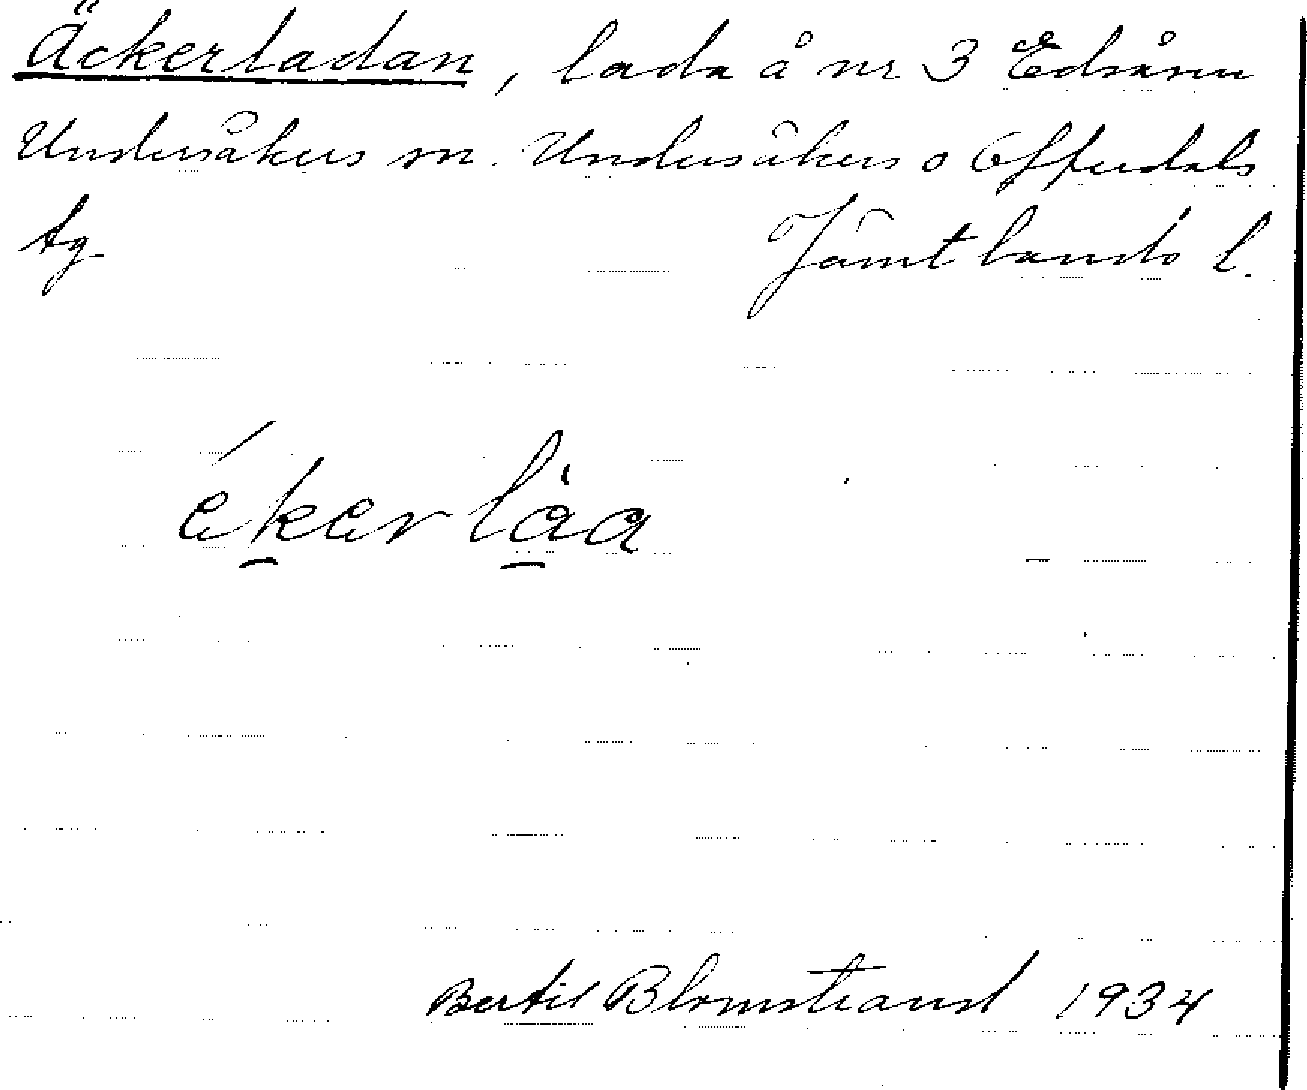 Äckerladan, lada å nr 3 Edsåsen
Undersåkers sn. Undersåkers o Offerdals
tg Jämtlands l.
ékerlàa
Bertil Blomstrand 1934